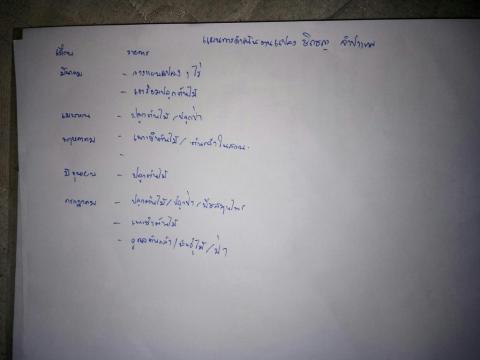 แผนการดำเนินงานแปลง
เดือน รายการ
มีนาคม - วางแผนแปลง 1 ไร่
- เตรียมปลูกต้นไม้
เมษายน - ปลูกต้นไม้ /ปลูกป่า
พฤษภาคม - เพาะชำต้นไม้ /
-
มิถุนายน - ปลูกต้นไม้
กรกฎาคม - ปลูกต้นไม้ /ปลูกป่า /พืชสมุนไพร
- เพาะชำต้นไม้
- ดูแลต้นกล้า /พันธุ์ไม้ /ป่า